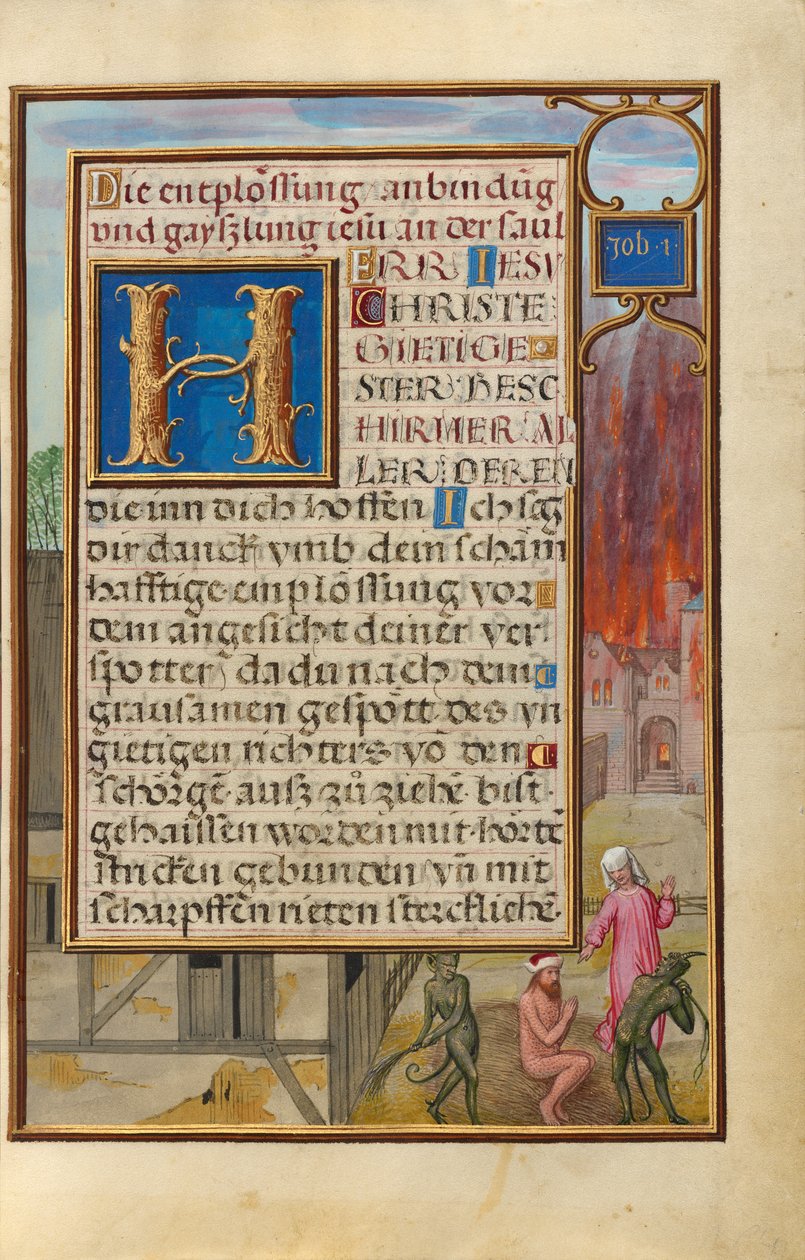 Die entplössung anbindūg
vnd gayszlung iesu an der saul
HERR IESV
CHRISTE
GIETIGE
STER BESC
HIRMER AL
LER DEREN
die inn dich hoffen Ich sag
dir danck vmb dein scham
hafftige emplössung vor
dem angesicht deiner ver
spotter da du nach dem
grausamen gespött des vn
gietigen richters vō den
schörgē ausz zůziehē bist
gehaissen worden mit hörtē
stricken gebunden vn̄ mit
scharpffen rieten stercklichē
Job .1.